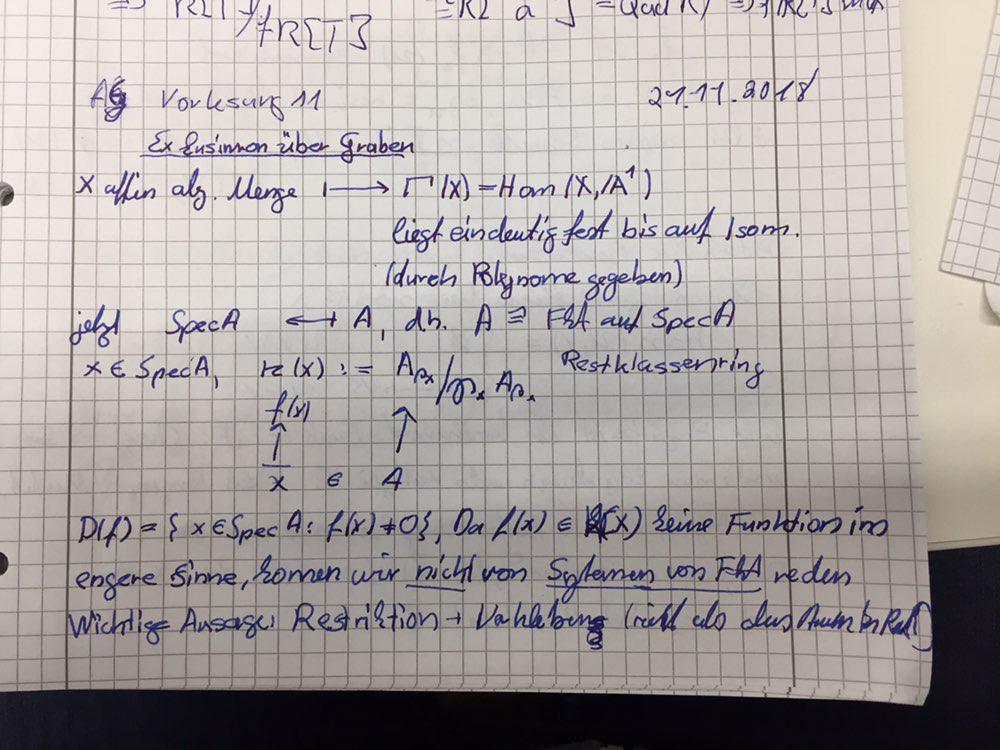 R[T]/fR[T]
AG Vorlesung 11 21.11.2018
Exkusinnon über Graben
X affin alg. Menge ↦ Γ(X) = Hom(X, A¹)
liegt eindeutig fest bis auf Isom.
(durch Polynome gegeben)
jetzt Spec A ↔ A, dh. A ≅ Fkt auf Spec A
x ∈ Spec A, κ(x) := A_{p_x}/p_x A_{p_x} Restklassenring
f(x)
↑ ↑
x ∈ A
D(f) = { x ∈ Spec A : f(x) ≠ 0 }, Da f(x) ∈ κ(x) keine Funktion im
engere Sinne, konnen wir nicht von Systemen von Fkt reden
Wichtige Aussage: Restriktion + Verklebung